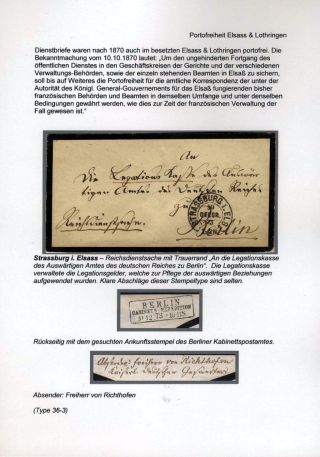 Portofreiheit Elsass & Lothringen
Dienstbriefe waren nach 1870 auch im besetzten Elsass & Lothringen portofrei. Die
Bekanntmachung vom 10.10.1870 lautet: „Um den ungehinderten Fortgang des
öffentlichen Dienstes in den Geschäftskreisen der Gerichte und der verschiedenen
Verwaltungs-Behörden, sowie der einzeln stehenden Beamten in Elsaß zu sichern,
soll bis auf Weiteres die Portofreiheit für die amtliche Korrespondenz der unter der
Autorität des Königl. General-Gouvernements für das Elsaß fungierenden bisher
französischen Behörden und Beamten in demselben Umfange und unter denselben
Bedingungen gewährt werden, wie dies zur Zeit der französischen Verwaltung der
Fall gewesen ist.“
An
die Legations Kasse des Auswär-
tigen Amtes des Deutschen Reiches
zu
Berlin
Reichsdienstsache
STRASSBURG I. ELS.
Strassburg i. Elsass – Reichsdienstsache mit Trauerrand „An die Legationskasse
des Auswärtigen Amtes des deutschen Reiches zu Berlin“. Die Legationskasse
verwaltete die Legationsgelder, welche zur Pflege der auswärtigen Beziehungen
aufgewendet wurden. Klare Abschläge dieser Stempeltype sind selten.
BERLIN
CABINETS-EXPEDITION
Rückseitig mit dem gesuchten Ankunftsstempel des Berliner Kabinettspostamtes.
Absender Freiherr von Richthofen
Kaiserl. Deutscher Gesandter
Absender: Freiherr von Richthofen
(Type 36-3)